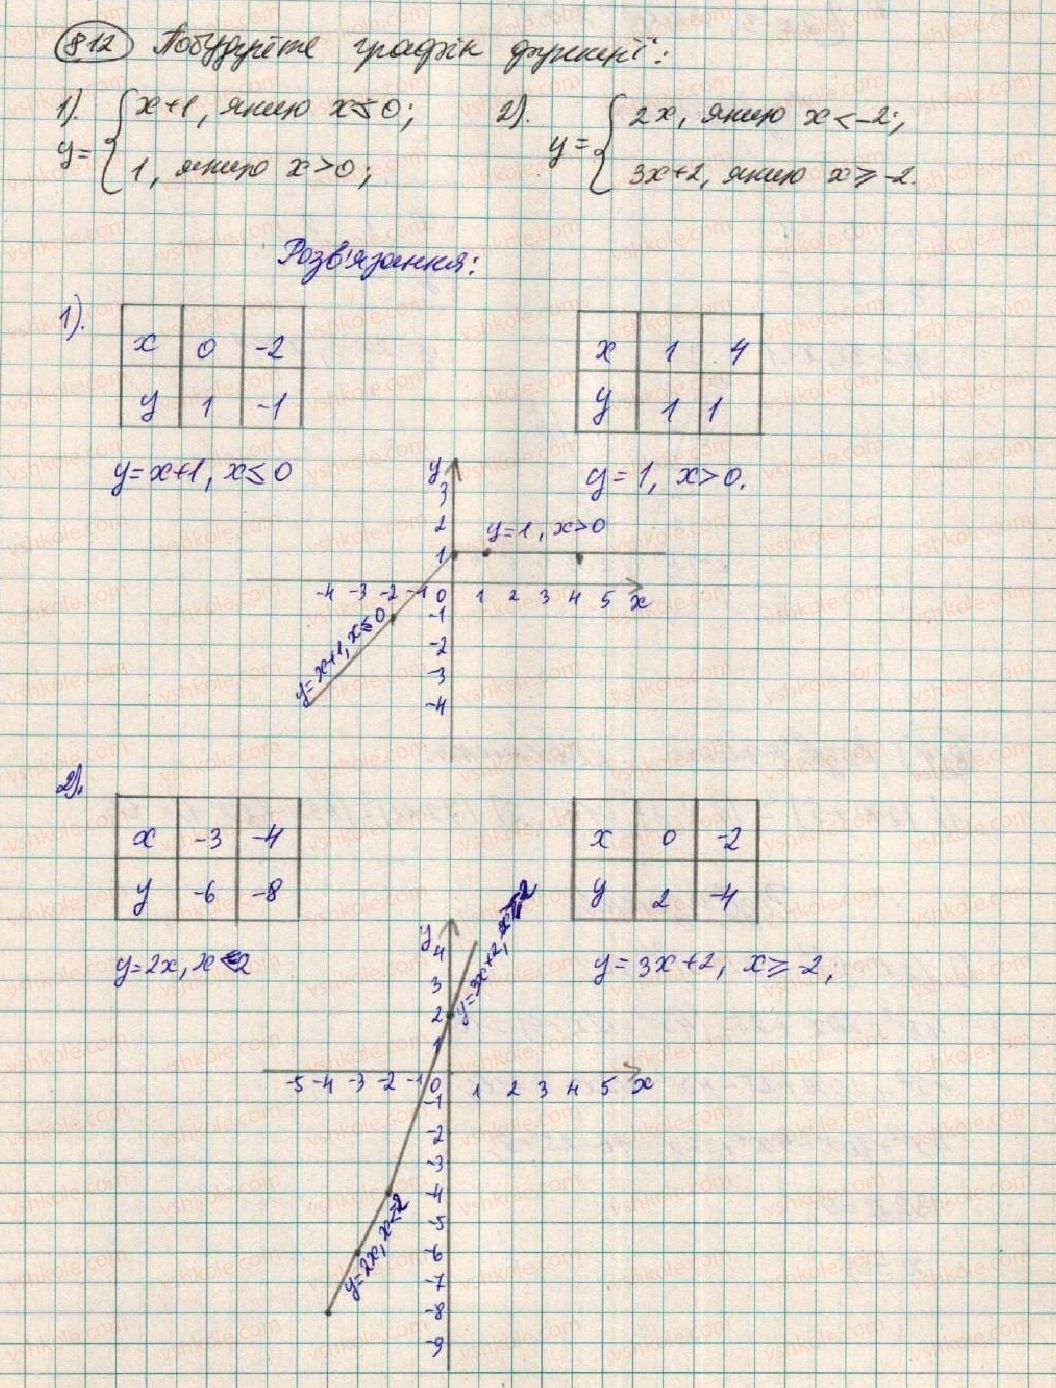 812 Побудуйте графік функції:
1). y = { x+1, якщо x ≤ 0;
1, якщо x > 0;
2). y = { 2x, якщо x < -2;
3x+2, якщо x ≥ -2.
Розв'язання:
1).
x 0 -2
y 1 -1
x 1 4
y 1 1
y = x+1, x ≤ 0
y = 1, x > 0.
y
3
2
y = 1, x > 0
1
-4 -3 -2 -1 0 1 2 3 4 5 x
y = x+1, x ≤ 0
-1
-2
-3
-4
2).
x -3 -4
y -6 -8
x 0 -2
y 2 -4
y = 2x, x < -2
y = 3x+2, x ≥ -2;
y
4
3
2
1
y = 3x+2, x ≥ -2
-5 -4 -3 -2 -1 0 1 2 3 4 5 x
-1
-2
-3
-4
-5
-6
-7
-8
-9
y = 2x, x < -2
vshkole.com